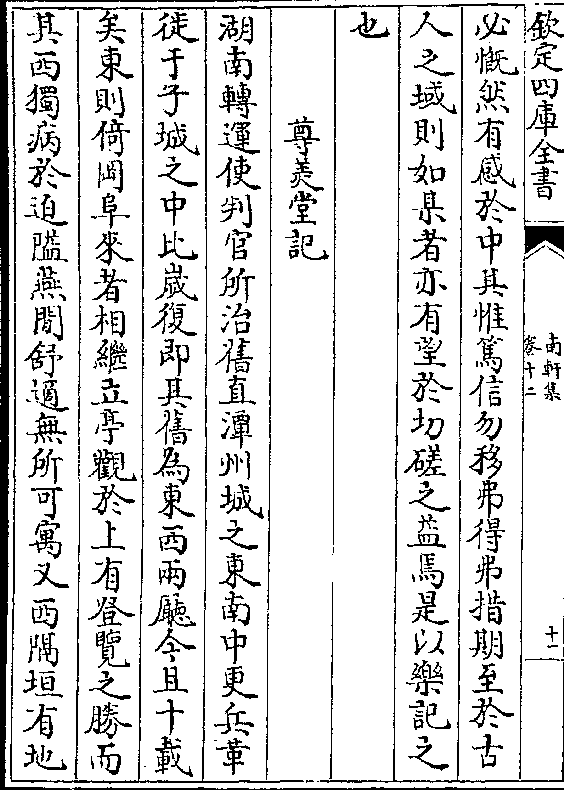 欽定四庫全書
南軒集
卷十二
十一
必慨然有感於中其惟篤信勿移弗得弗措期至於古
人之域則如某者亦有望於切磋之益焉是以樂記之
也
尊美堂記
湖南轉運使判官所治舊直潭州城之東南中更兵革
徙于子城之中比嵗復即其舊為東西兩㕔今且十載
矣東則倚岡阜來者相繼立亭觀於上有登覽之勝而
其西獨病於迫隘燕閒舒適無所可寓又西隅垣有地